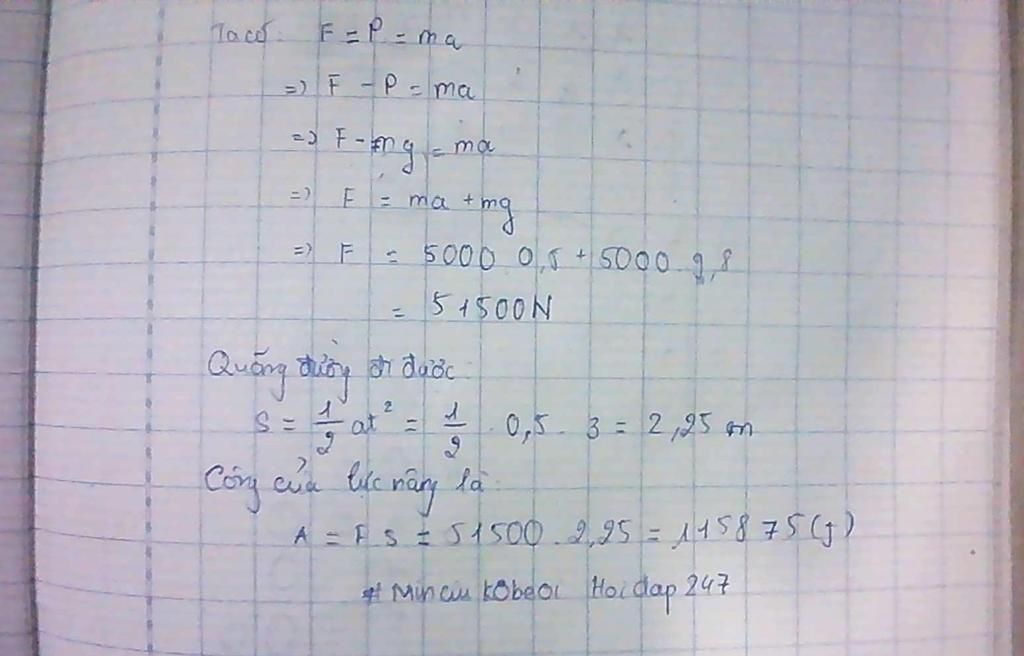 Ta có: F = P = ma
=> F - P = ma
=> F - mg = ma
=> F = ma + mg
=> F = 5000 0,5 + 5000 . 9,8
= 51500N
Quãng đường đi được:
S = 1/2 at² = 1/2 . 0,5 . 3 = 2,25 m
Công của lực nâng là:
A = F S = 51500 . 2,25 = 115875 (J)
# Hoidap247